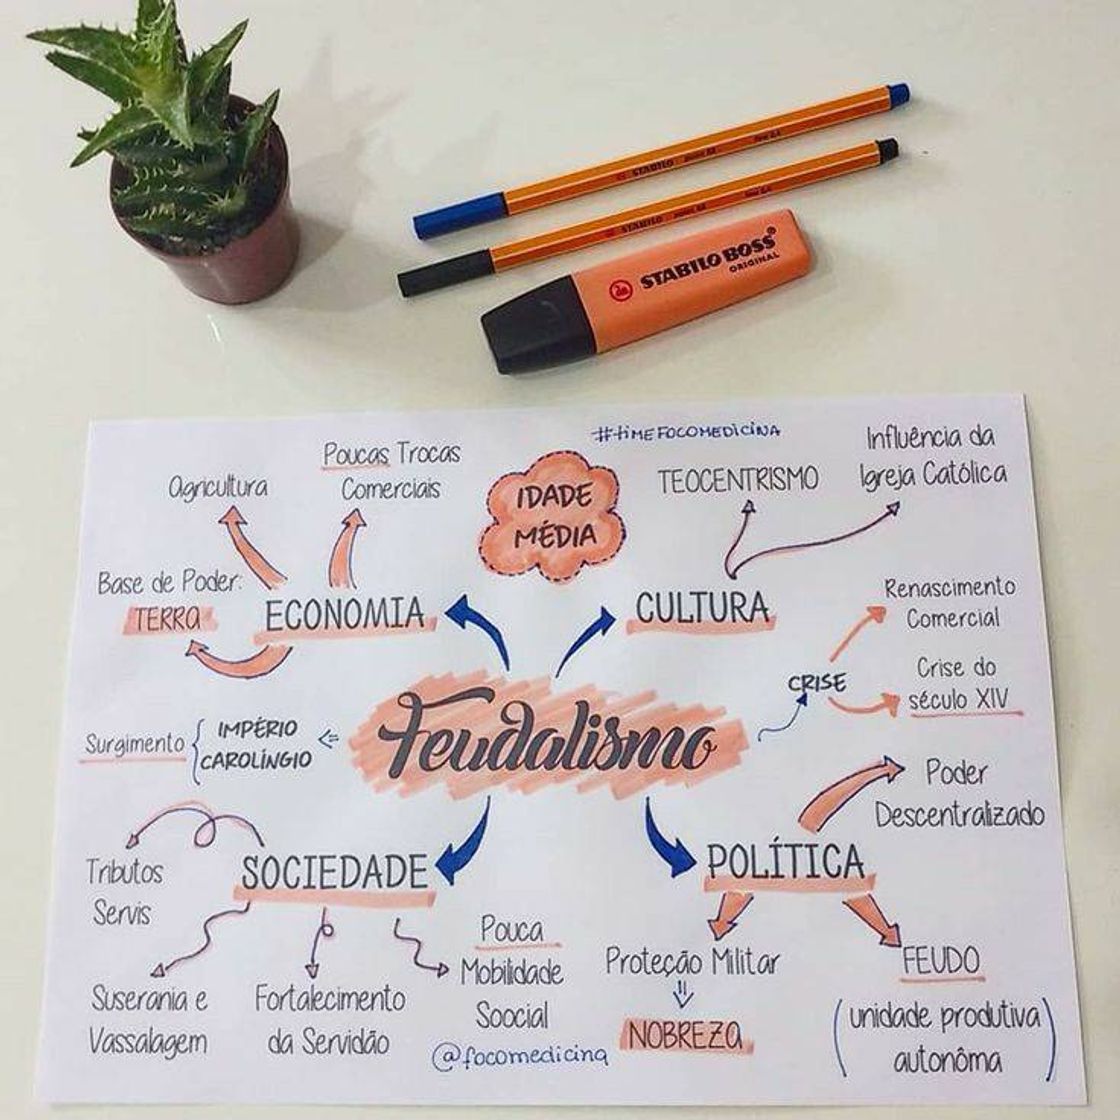 STABILO point 88 fine 0,4
STABILO point 88 fine 0,4
STABILO BOSS®
ORIGINAL
#tiMEFOCOMEDiCiNA
IDADE
MÉDIA
Agricultura
Poucas Trocas
Comerciais
Base de Poder:
TERRA
ECONOMIA
TEOCENTRISMO
Influência da
Igreja Católica
CULTURA
Renascimento
Comercial
CRISE
Crise do
século XIV
Feudalismo
Surgimento
IMPÉRIO
CAROLÍNGIO
SOCIEDADE
Tributos
Servis
Suserania e
Vassalagem
Fortalecimento
da Servidão
Pouca
Mobilidade
Soocial
@focomedicina
POLÍTICA
Poder
Descentralizado
Proteção Militar
NOBREZA
FEUDO
(unidade produtiva
autonôma)